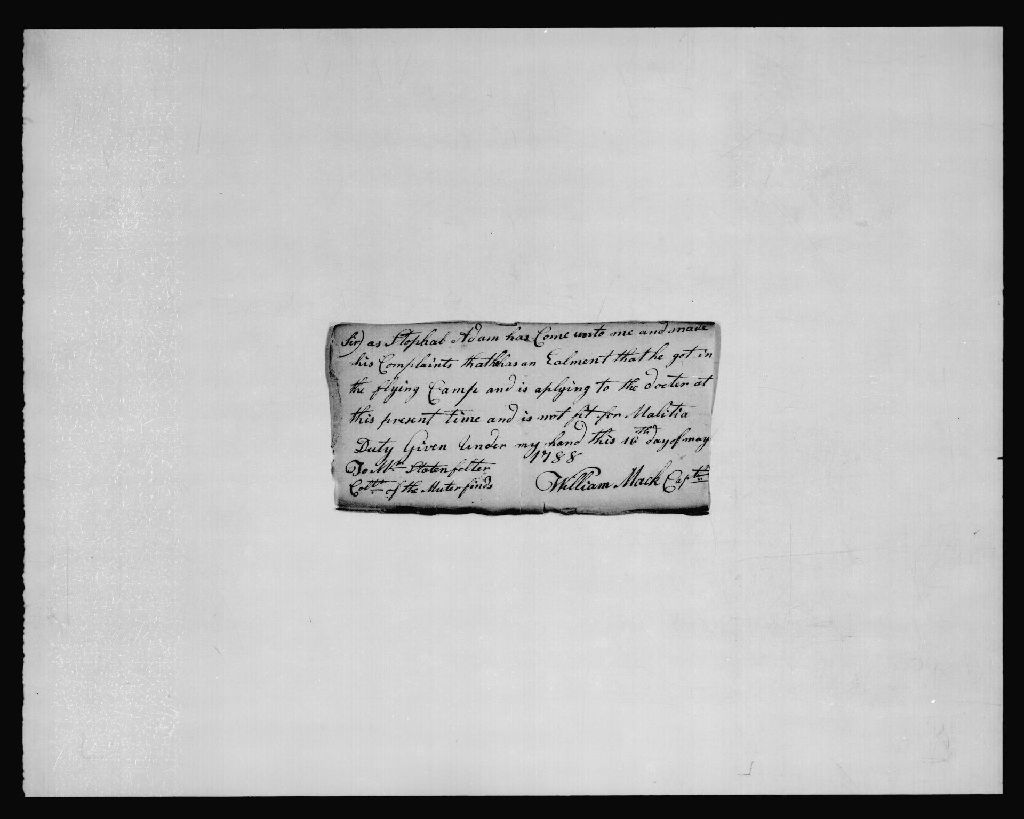 Sir as Stophal Adam has Come unto me and made
his Complaints that he has an Ealment that he got in
the flying Camp and is aplying to the docter at
this present time and is not fit for Malitia
Duty Given Under my hand this 16th day of may
1788
To Mr
Coltr of the Muter finds
William Mack Captn